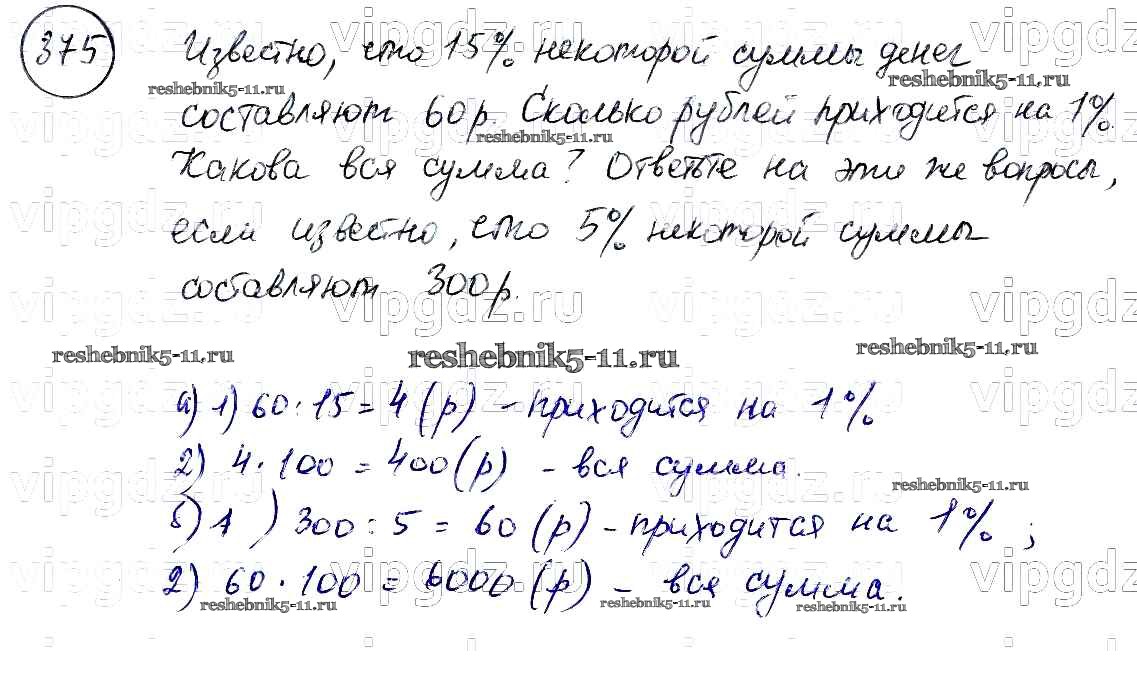 375 Известно, что 15% некоторой суммы денег
составляют 60 р. Сколько рублей приходится на 1%.
Какова вся сумма? Ответьте на эти же вопросы,
если известно, что 5% некоторой суммы
составляют 300 р.
reshebnik5-11.ru
а) 1) 60 : 15 = 4 (р) - приходится на 1%
2) 4 · 100 = 400 (р) - вся сумма.
б) 1) 300 : 5 = 60 (р) - приходится на 1%;
2) 60 · 100 = 6000 (р) - вся сумма.
vipgdz.ru